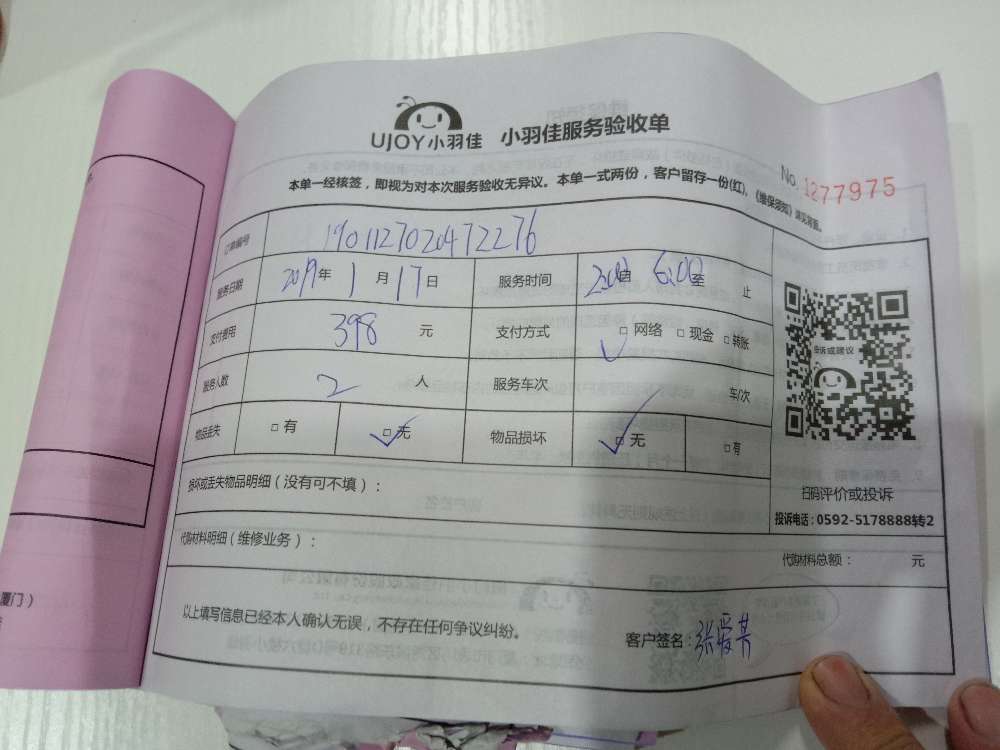 UJOY小羽佳 小羽佳服务验收单
No 1277975
本单一经核签，即视为对本次服务验收无异议。本单一式两份，客户留存一份(红)，《维保须知》详见背面。
订单编号 190112702047 2276
服务日期 2019年 1月17日 服务时间 2:00自 6:00至 止
支付费用 398 元 支付方式 □ 网络 □ 现金 □ 转账
服务人数 2 人 服务车次 车/次
物品丢失 □ 有 □ 无 物品损坏 □ 无 □ 有
投诉或建议
扫码评价或投诉
投诉电话：0592-5178888转2
损坏或丢失物品明细（没有可不填）：
代购材料明细（维修业务）： 代购材料总额： 元
以上填写信息已经本人确认无误，不存在任何争议纠纷。
客户签名：张爱其
厦门）